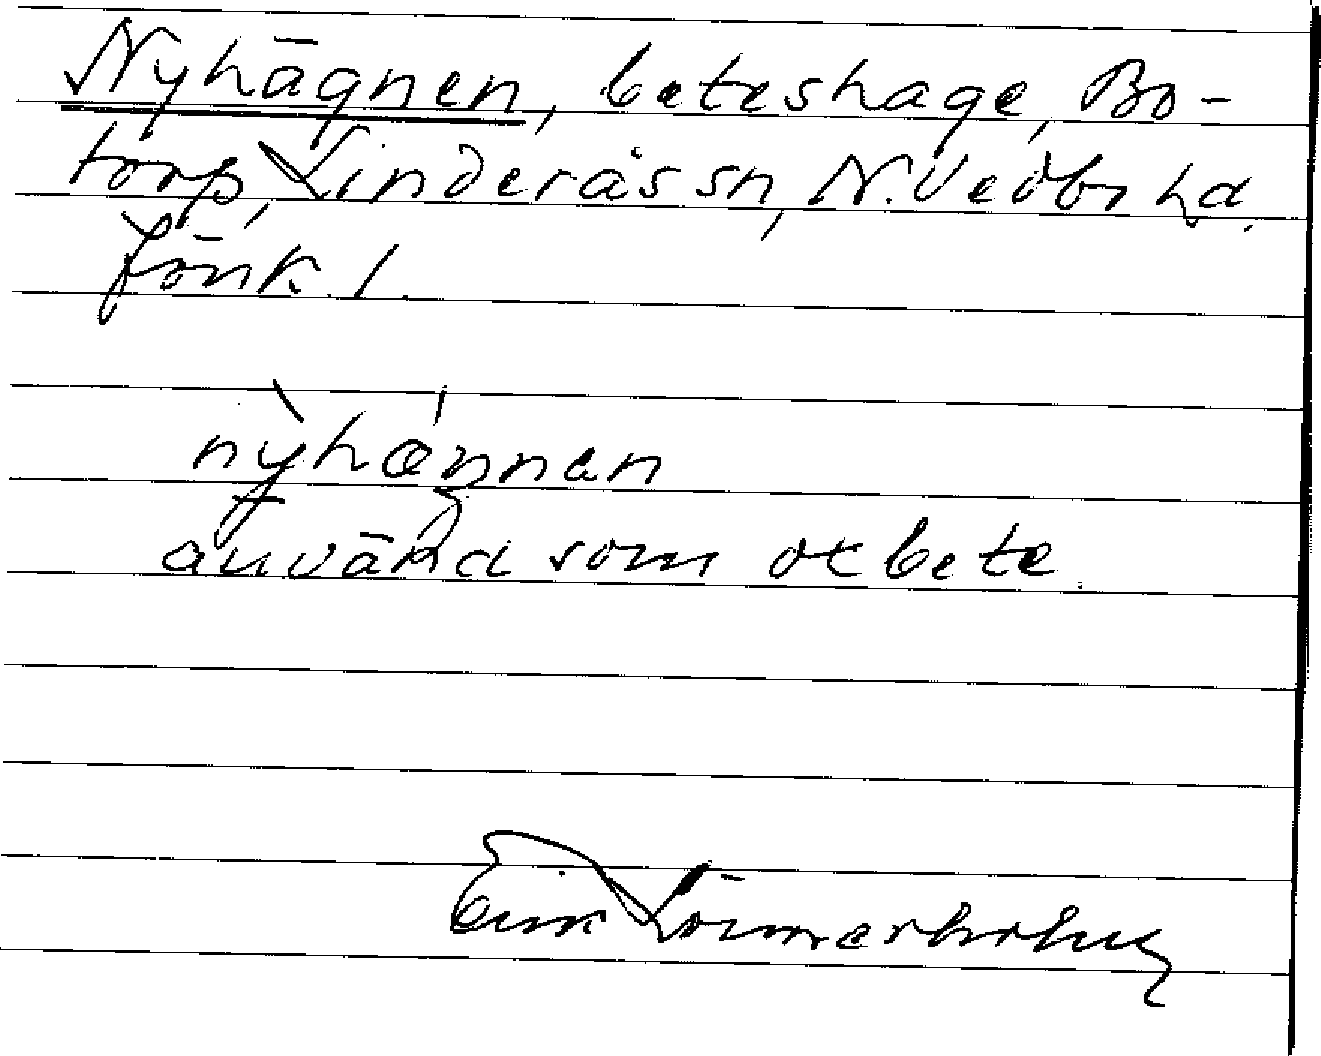 Nyhägnen, beteshage, Bo-
torp, Linderås sn, N. Vedbo hd.
Jönk. l.
nỳhǽŋnan
använd som betе.
Erik Lömmerholm